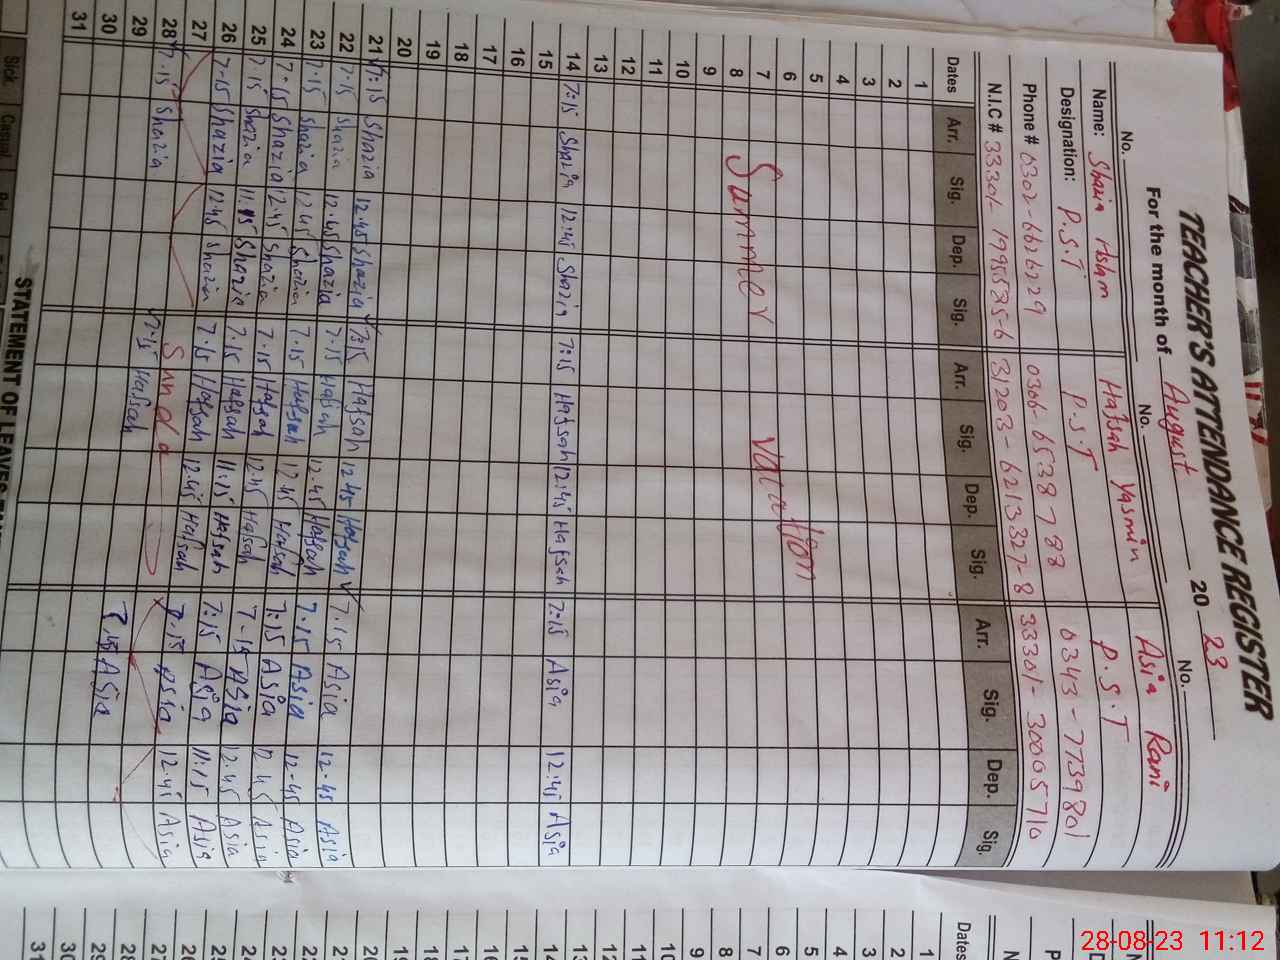 TEACHER'S ATTENDANCE REGISTER
For the month of August 2023
No. No. No.
Name: Shazia Aslam Hafsah Yasmin Asia Rani
Designation: P.S.T P.S.T P.S.T
Phone # 0306-6538788 0343-7739801
N.I.C # 31203-6213327-8 33301-30005710
Dates Arr. Sig. Dep. Sig. Arr. Sig. Dep. Sig. Arr. Sig. Dep. Sig.
1
2
3
4
5
6
7 Summer Vacation
8
9
10
11
12
13
14 7:15 Shazia 12:45 Shazia 7:15 Hafsah 12:45 Hafsah 7:15 Asia 12:45 Asia
15
16
17
18
19
20
21 7:15 Shazia 12.45 Shazia 7:15 Hafsah 12.45 Hafsah 7.15 Asia 12.45 Asia
22 7.15 Shazia 12.45 Shazia 7.15 Hafsah 12.45 Hafsah 7.15 Asia 12.45 Asia
23 7.15 Shazia 12.45 Shazia 7.15 Hafsah 12.45 Hafsah 7:15 Asia 12.45 Asia
24 7.15 Shazia 12.45 Shazia 7.15 Hafsah 12.45 Hafsah 7.15 Asia 12.45 Asia
25 7.15 Shazia 11.15 Shazia 7.15 Hafsah 11.15 Hafsah 7:15 Asia 11:15 Asia
26 7.15 Shazia 12.45 Shazia 7.15 Hafsah 12.45 Hafsah 7.15 Asia 12.45 Asia
27
28 7.15 Shazia 7.15 Hafsah 7.15 Asia
29
30
31
STATEMENT OF LEAVES
Sick Casual
Dates
1
2
3
4
5
6
7
8
9
10
11
12
13
14
15
16
17
18
19
20
21
22
23
24
25
26
27
28
29
30
31
28-08-23 11:12